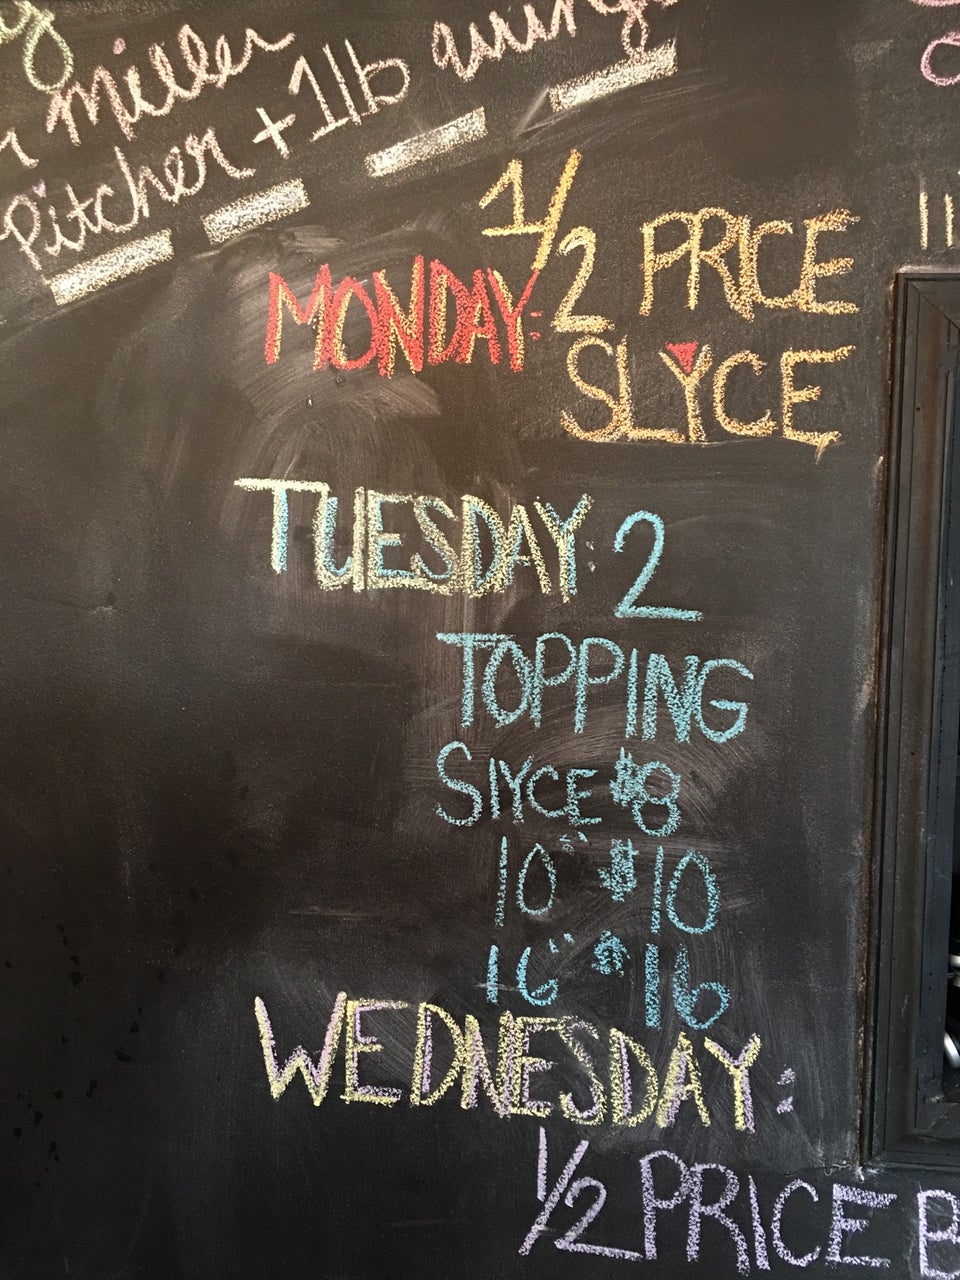 Miller
Pitcher + 1lb wings
MONDAY: 1/2 PRICE
SLYCE
TUESDAY: 2
TOPPING
SlYCE $8
10" $10
16" $16
WEDNESDAY:
1/2 PRICE B